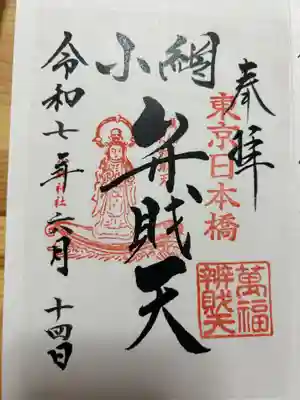 奉拝
東京日本橋
小網
弁賊天
萬福
辨財天
神社
令和七年六月十四日